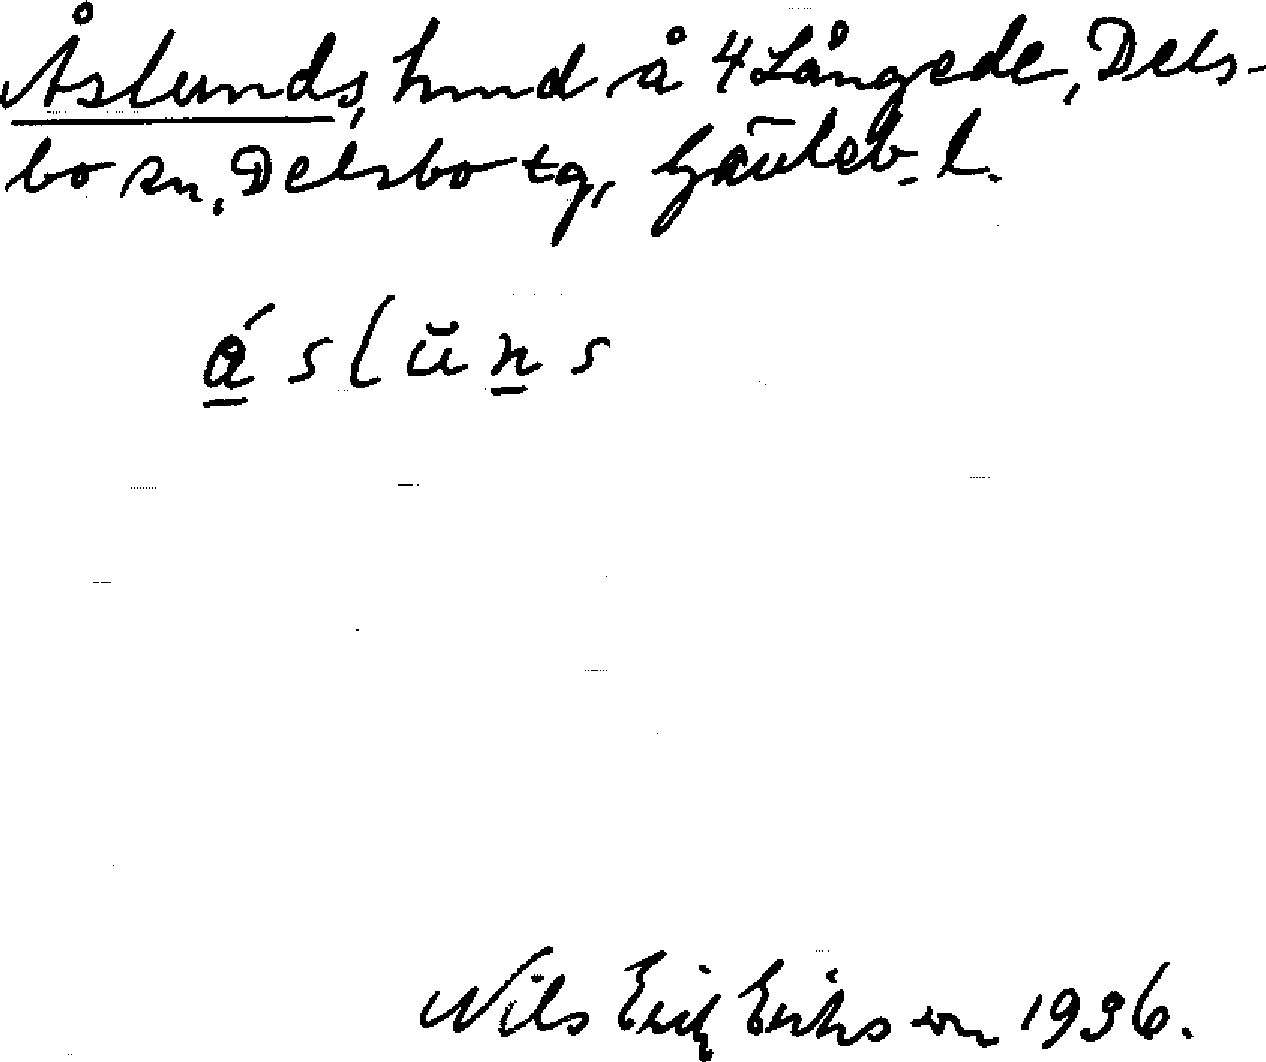 Åslunds, hmd å 4 Långede, Dels-
bo sn, Delsbo tg, Gävleb. l.
á s l ŭ n s
Nils Erik Eriksson 1936.